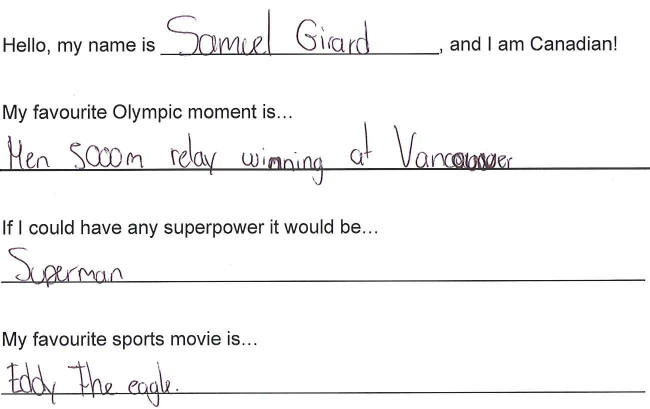 Hello, my name is Samuel Girard, and I am Canadian!
My favourite Olympic moment is...
Men 5000m relay winning at Vancouver
If I could have any superpower it would be...
Superman
My favourite sports movie is...
Eddy The eagle.